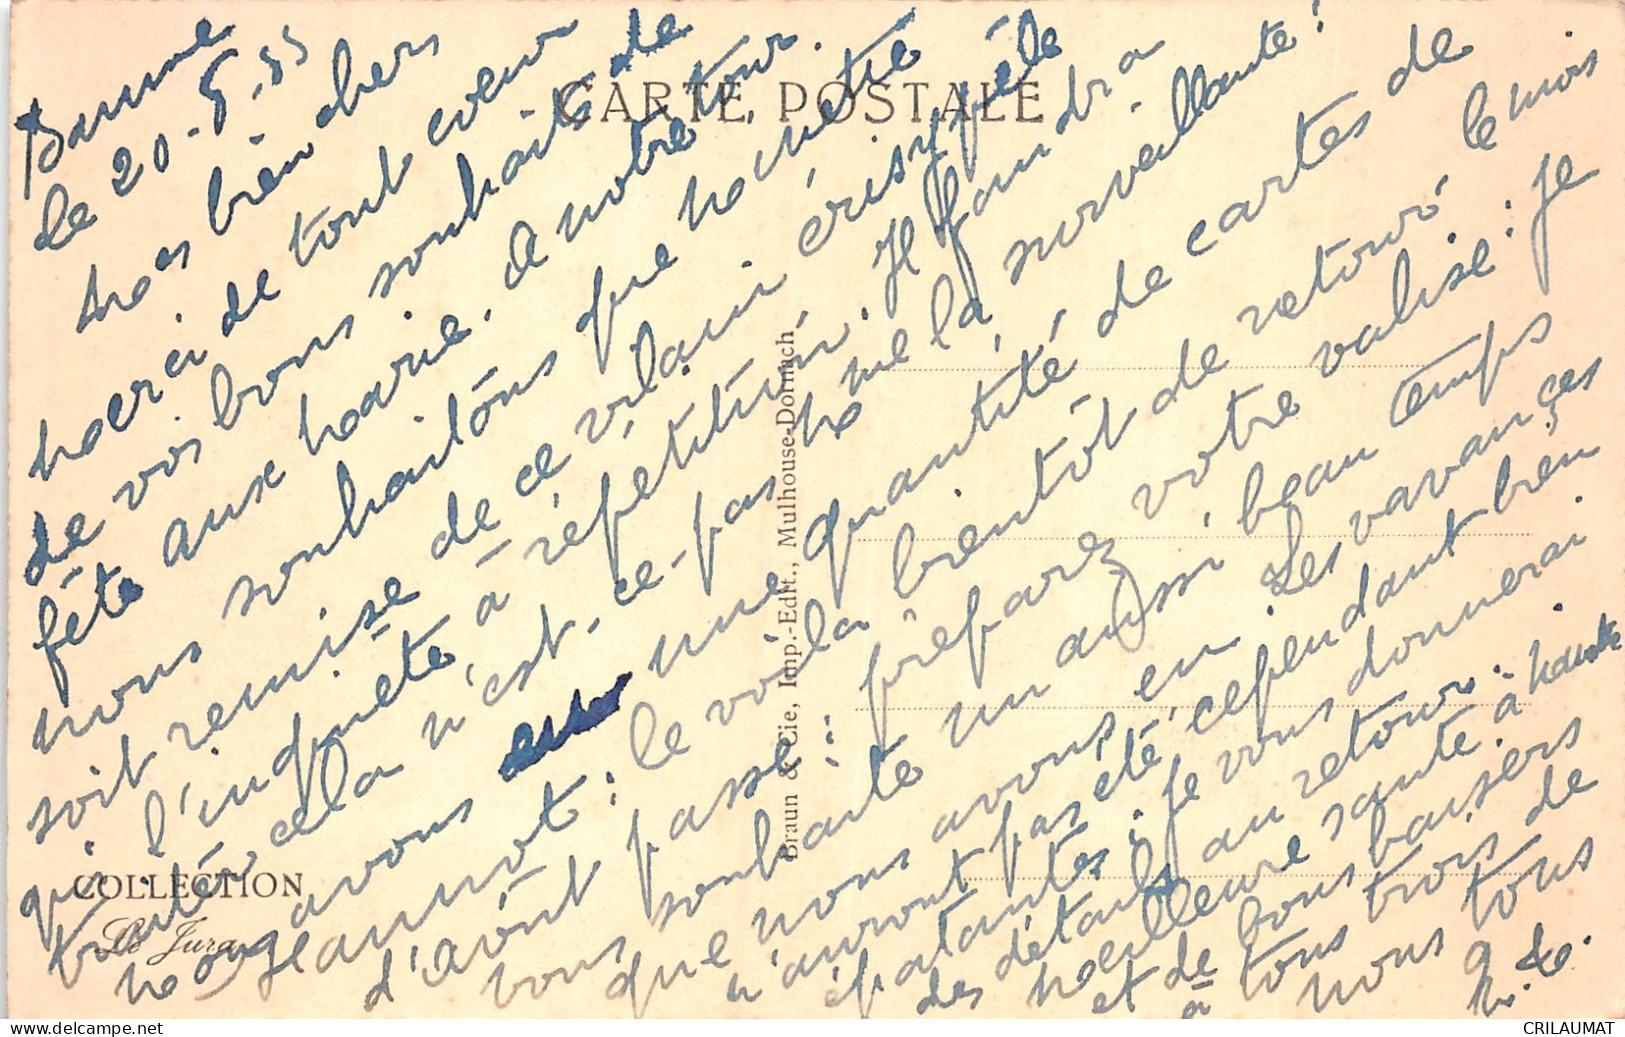 Baume
le 20-8-33
Mes bien chers
Merci de tout cœur
de vos bons souhaits de
fête aux Marie. A notre tour
nous souhaitons que Mémé
soit remise de ce vilain érisypèle
qui l'inquiète à répétition. Il faudra
cela n'est-ce-pas me la surveillante!
nous avons une quantité de cartes de
Jeannot: le voilà bientôt de retour le mois
d'août passe: préparez votre valise: Je
vous souhaite un aussi beau temps
que nous avons eu. Les vacances
n'auront pas été cependant bien
épatantes; je vous donnerai
des détails au retour.
Meilleure santé à
et de bons baisers
à tous trois de
nous tous
CARTE POSTALE
Braun & Cie, Imp.-Edit., Mulhouse-Dornach
COLLECTION
Le Jura
CRILAUMAT